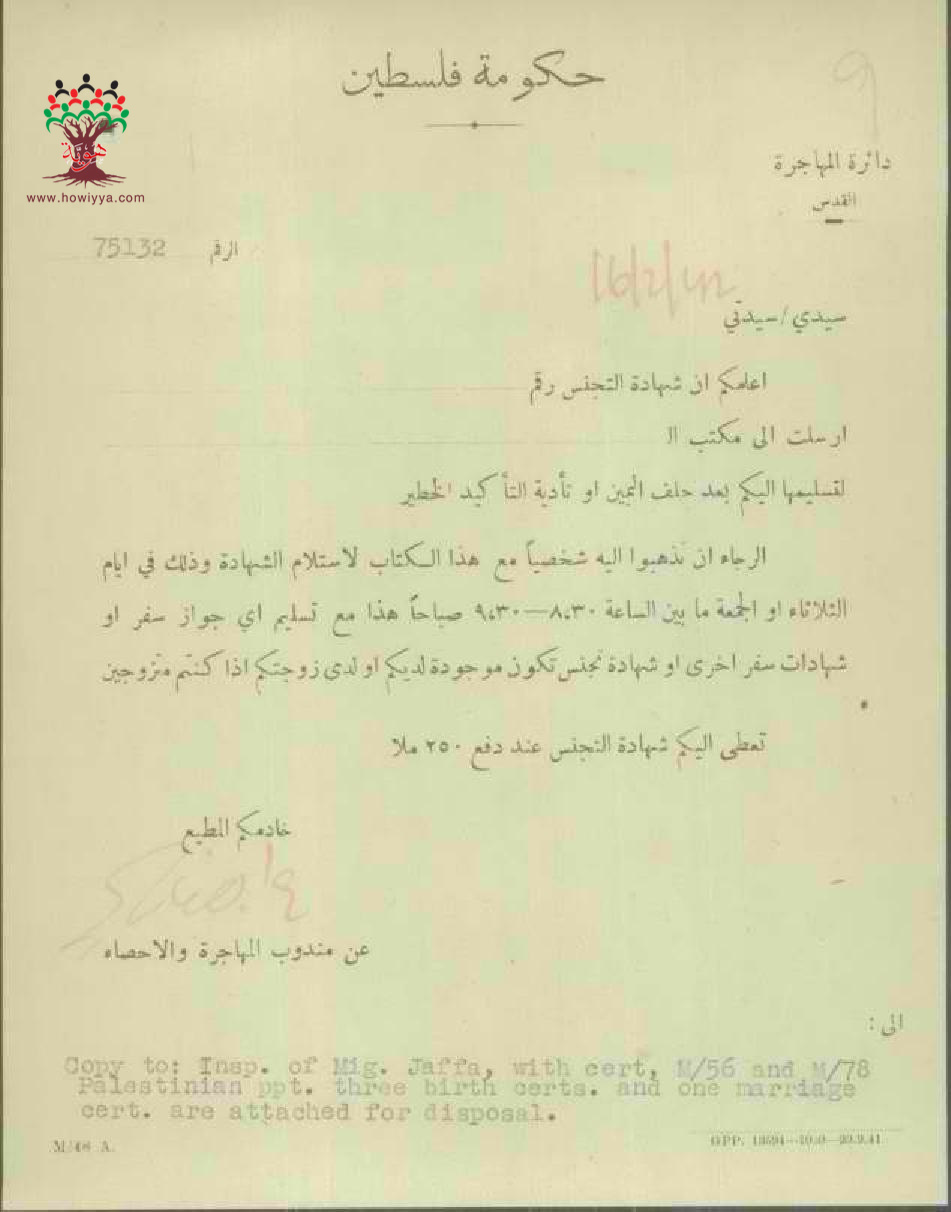 حكومة فلسطين
هوية
www.howiyya.com
دائرة المهاجرة
القدس
الرقم 75132
16/2/42
سيدي/سيدتي
اعلمكم ان شهادة التجنس رقم
ارسلت الى مكتب ال
لتسليمها اليكم بعد حلف اليمين او تأدية التأكيد الخطير
الرجاء ان تذهبوا اليه شخصياً مع هذا الكتاب لاستلام الشهادة وذلك في ايام
الثلاثاء او الجمعة ما بين الساعة ٨،٣٠—٩،٣٠ صباحاً هذا مع تسليم اي جواز سفر او
شهادات سفر اخرى او شهادة تجنس تكون موجودة لديكم او لدى زوجتكم اذا كنتم متزوجين
تعطى اليكم شهادة التجنس عند دفع ٢٥٠ ملا
خادمكم المطيع
عن مندوب المهاجرة والاحصاء
الى :
Copy to: Insp. of Mig. Jaffa, with cert, M/56 and M/78
Palestinian ppt. three birth certs. and one marriage
cert. are attached for disposal.
M/48 A.
GPP.